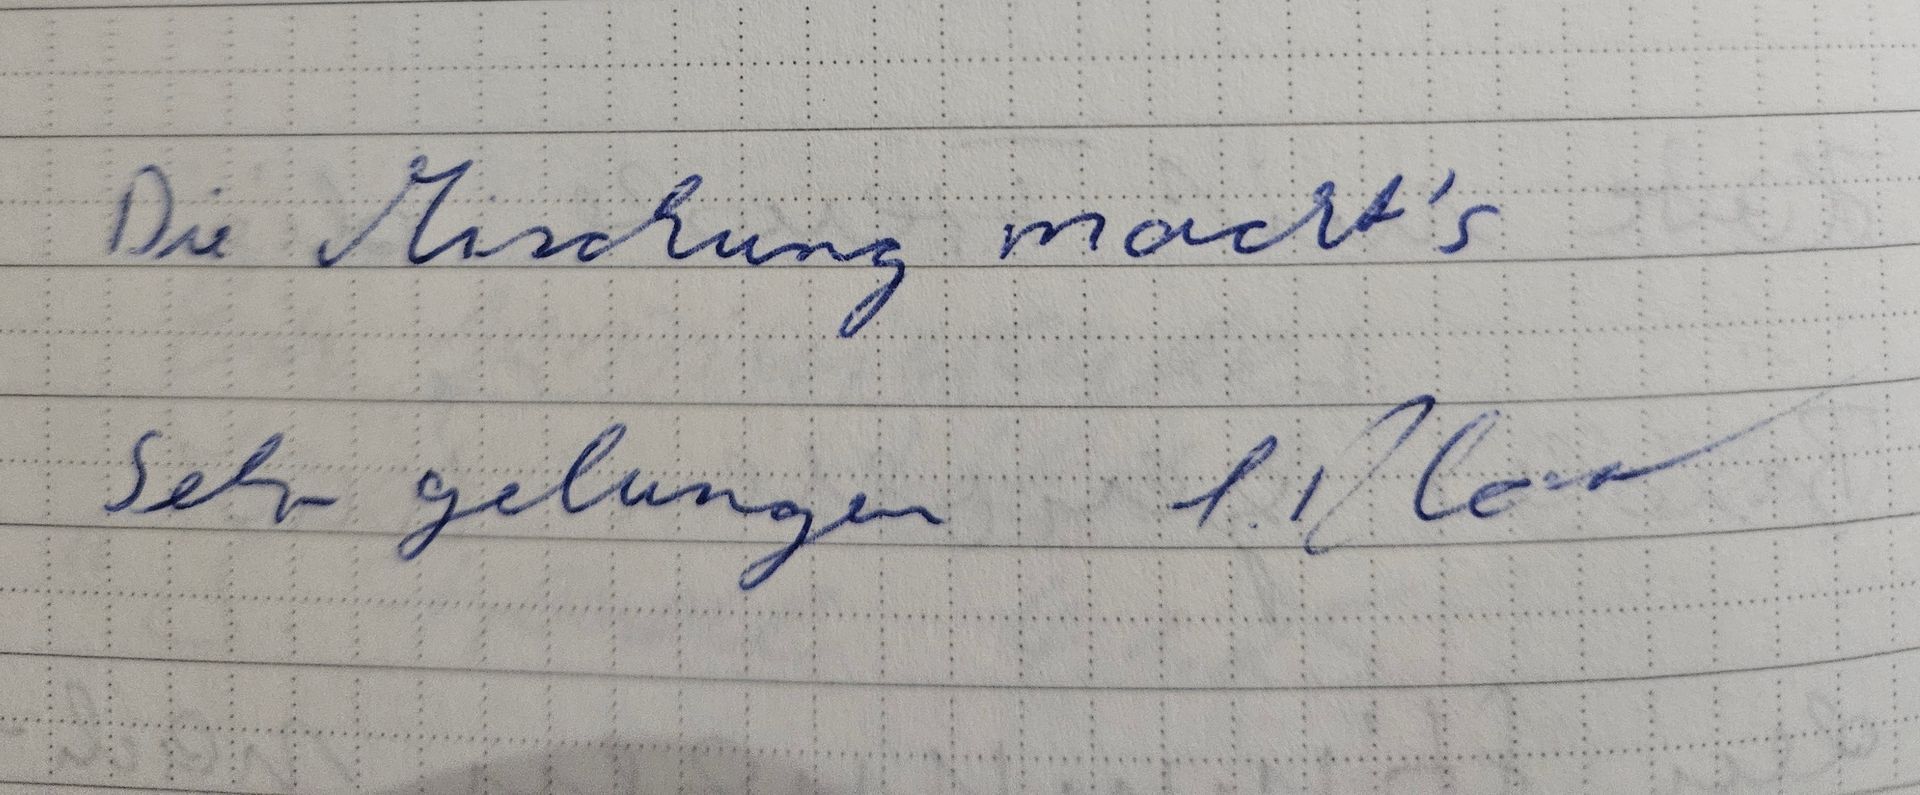 Die Mischung macht's
Sehr gelungen